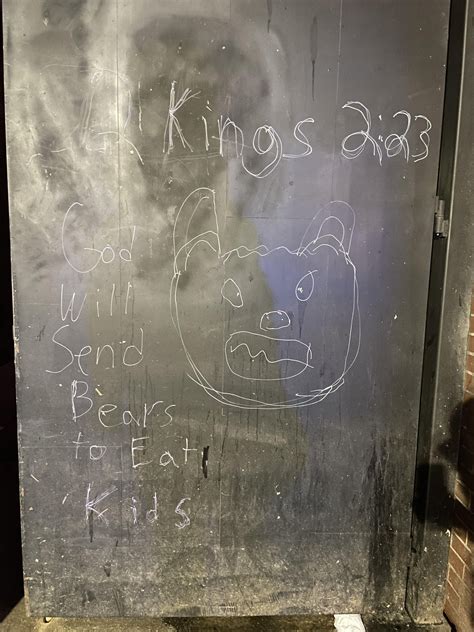 2 Kings 2:23
God
Will
Send
Bears
to Eat
Kids